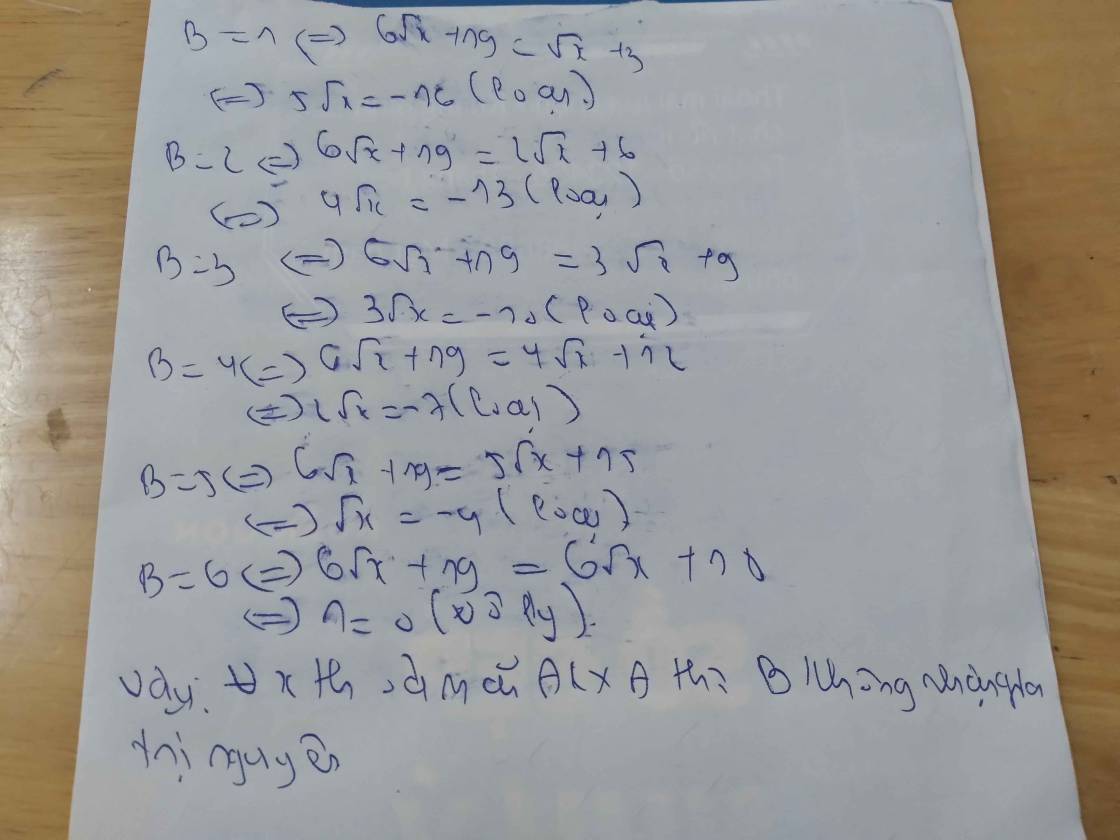 B = 1 (=) 6√x + 19 = √x + 3
(=) 5√x = -16 (loại)
B = 2 (=) 6√x + 19 = 2√x + 6
(=) 4√x = -13 (loại)
B = 3 (=) 6√x + 19 = 3√x + 9
(=) 3√x = -10 (loại)
B = 4 (=) 6√x + 19 = 4√x + 12
(=) 2√x = -7 (loại)
B = 5 (=) 6√x + 19 = 5√x + 15
(=) √x = -4 (loại)
B = 6 (=) 6√x + 19 = 6√x + 18
(=) 1 = 0 (vô lý).
Vậy ∀ x thoả mãn thì B không nhận giá
trị nguyên